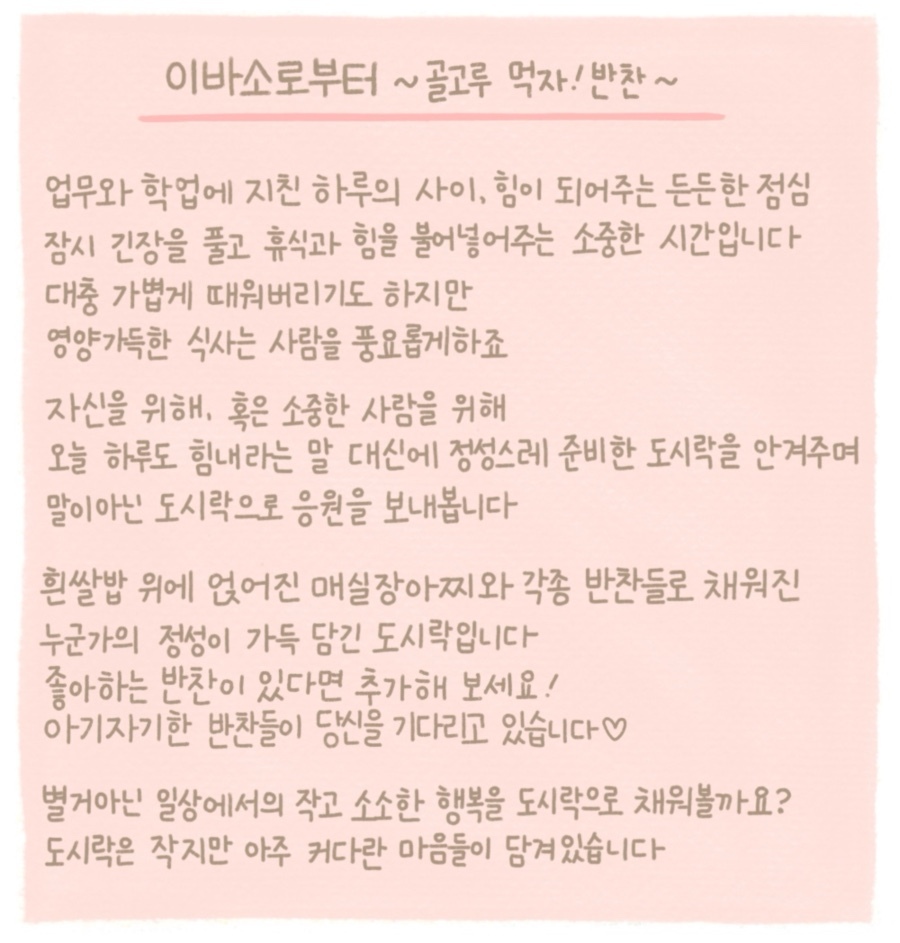 이바소로부터 ~골고루 먹자!반찬~
업무와 학업에 지친 하루의 사이, 힘이 되어주는 든든한 점심
잠시 긴장을 풀고 휴식과 힘을 불어넣어주는 소중한 시간입니다
대충 가볍게 때워버리기도 하지만
영양가득한 식사는 사람을 풍요롭게하죠
자신을 위해, 혹은 소중한 사람을 위해
오늘 하루도 힘내라는 말 대신에 정성스레 준비한 도시락을 안겨주며
말이아닌 도시락으로 응원을 보내봅니다
흰쌀밥 위에 얹어진 매실장아찌와 각종 반찬들로 채워진
누군가의 정성이 가득 담긴 도시락입니다
좋아하는 반찬이 있다면 추가해 보세요!
아기자기한 반찬들이 당신을 기다리고 있습니다♡
별거아닌 일상에서의 작고 소소한 행복을 도시락으로 채워볼까요?
도시락은 작지만 아주 커다란 마음들이 담겨있습니다